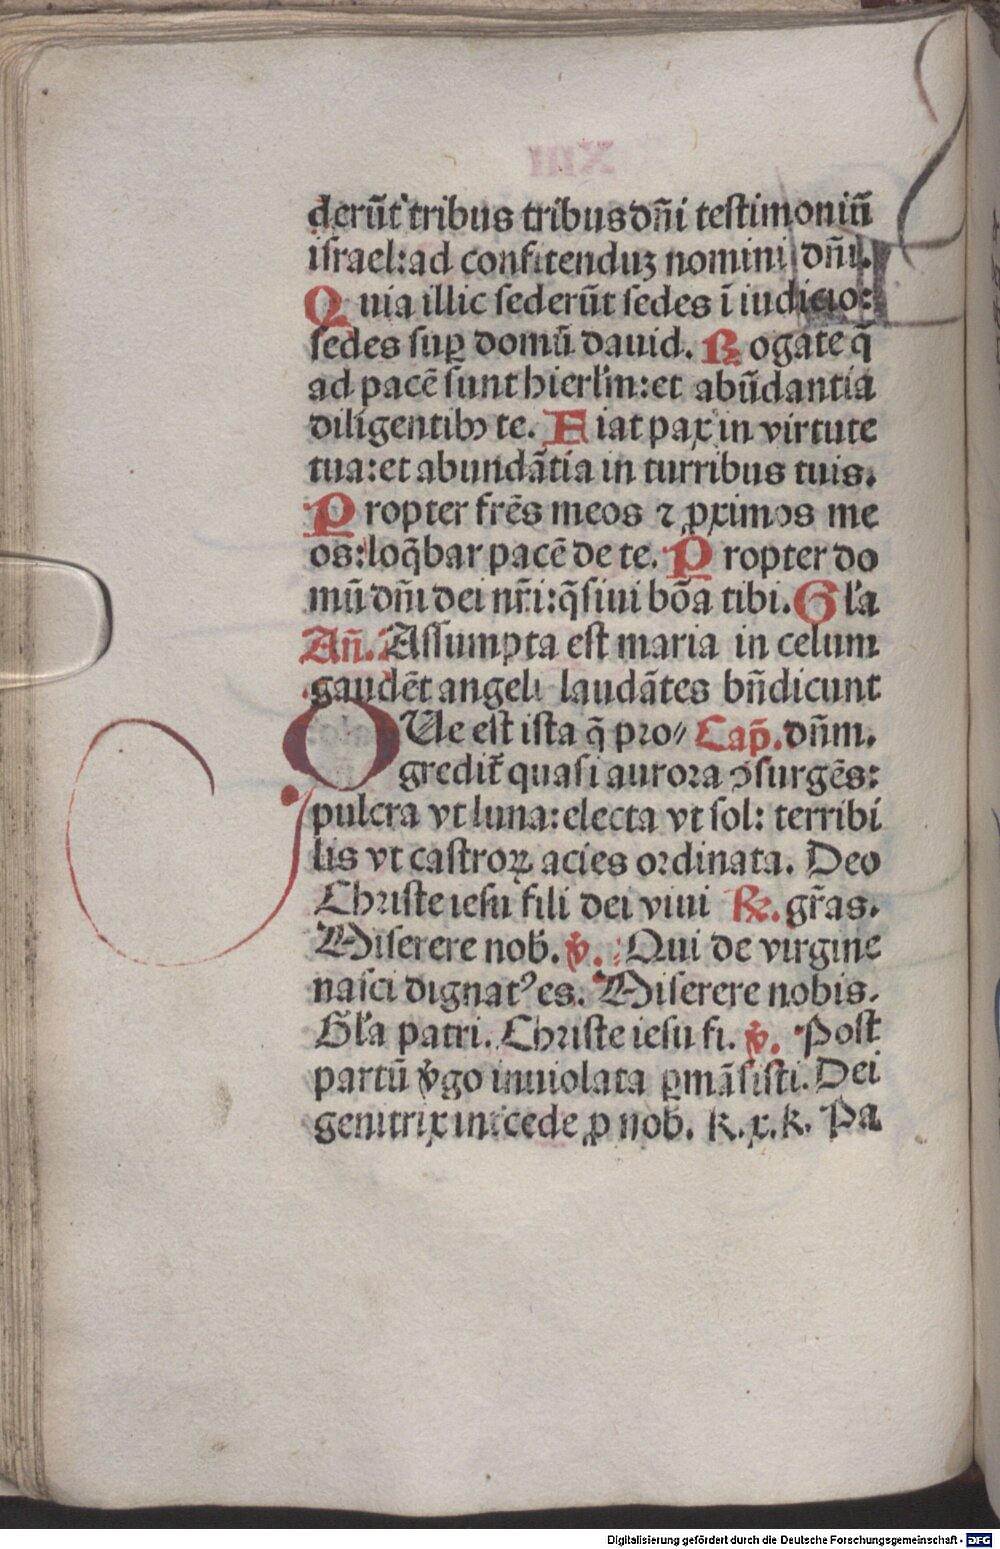 derūt tribus tribus dn̄i testimoniū
israel: ad confitenduꝫ nomini dn̄i.
Quia illic sederūt sedes ī iudicio:
sedes suꝑ domū dauid. Rogate q̄
ad pacē sunt hierłm: et abūdantia
diligentibꝰ te. Fiat pax in virtute
tua: et abundātia in turribus tuis.
Propter frēs meos ⁊ ꝓximos me
os: loq̄bar pacē de te. Propter do
mū dn̄i dei nr̄i: q̄siui bōa tibi. Gła
An̄. Assumpta est maria in celum
gaudēt angeli laudātes bn̄dicunt
QUe est ista q̄ pro⸗ Cap̄. dn̄m.
gredit᷑ quasi aurora ꝯsurgēs:
pulcra vt luna: electa vt sol: terribi
lis vt castroꝝ acies ordinata. Deo
Christe iesu fili dei viui ℟. gr̄as.
Miserere nob̄. ℣. Qui de virgine
nasci dignatꝰ es. Miserere nobis.
Gła patri. Christe iesu fi. ℣. Post
partū v̄go inuiolata ꝑmāsisti. Dei
genitrix int̄cede ꝓ nob̄. k. x. k. Pa
Digitalisierung gefördert durch die Deutsche Forschungsgemeinschaft - DFG